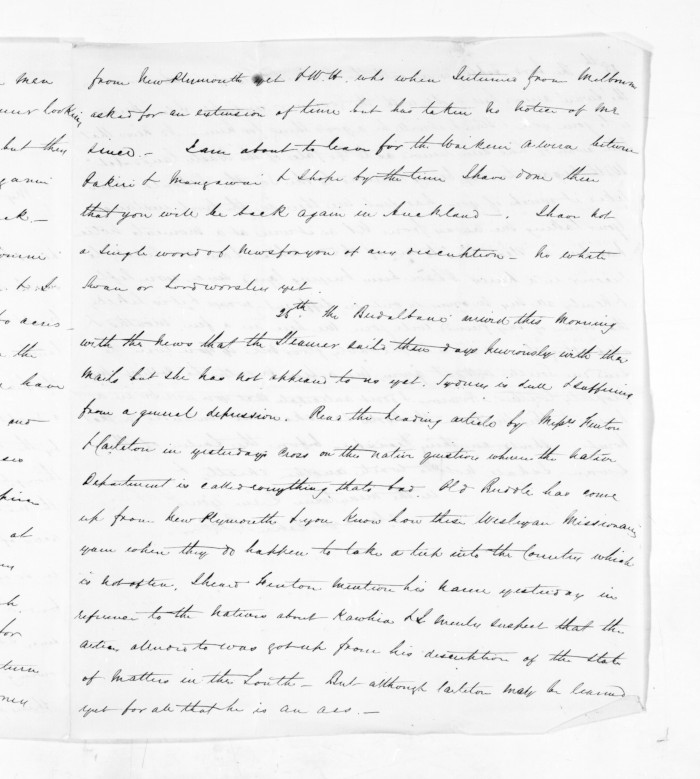 men
from New Plymouth yet & W.H. who when I returned from Melbourne
looking
asked for an extension of time but has taken no notice of me
but they
since. - I am about to leave for the Waikeri awera between
Pakiri & Mangawai & I hope by the time I have done there
that you will be back again in Auckland -. I have not
a single word of news for you of any description - No white
Swan or Lord worsley yet.
25th. The Breadalbane arrived this Morning
with the news that the Steamer sails three days previously with the
the
Mails but she has not appeared to us yet. Sydney is dull & suffering
have
from a general depression. Read the leading article by Messrs Fenton
and
& Carleton in yesterdays Cross on the native question wherein the Native
Department is called everything thats bad. Old Buddle has come
up from New Plymouth & you know how these Wesleyan Missionaries
at
yarn when they do happen to take a trip into the Country which
is not often. I heard Fenton mention his name yesterday in
reference to the Natives about Kawhia & I merely suspect that the
for
article alluded to was got up from his description of the state
of Matters in the South - But although Carleton may be learned
yet for all that he is an ass. -